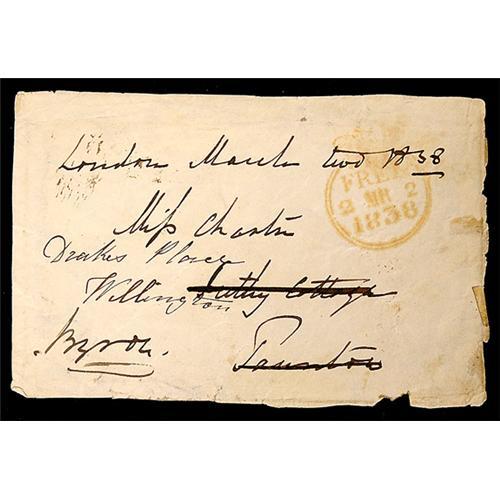 London March two 1838
FREE
2 MR 2
1838
Miss Charter
Drakes Place
Wellington Cottage
Byron.
Taunton